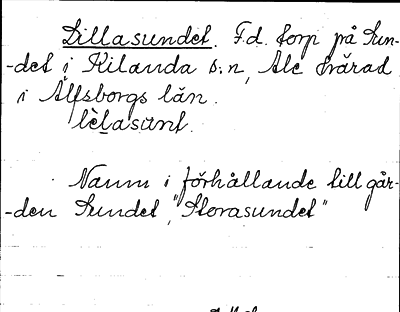 Lillasundet. F.d. torp på Sun-
-det i Kilanda s:n, Ale härad
i Älfsborgs län.
lèlasúnt.
Namn i förhållande till går-
-den Sundet, "Storasundet"